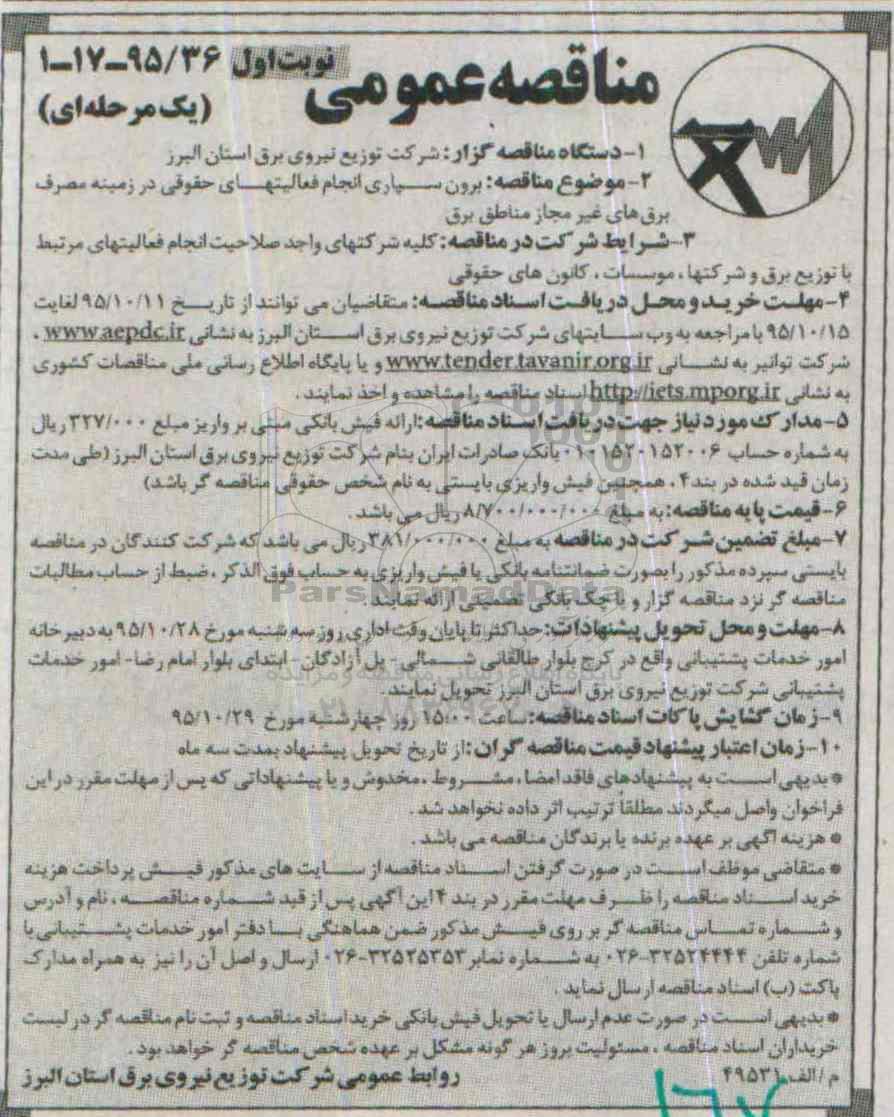 مناقصه عمومی
نوبت اول ۹۵/۳۶-۱۷-۱
(یک مرحله‌ای)
۱- دستگاه مناقصه گزار: شرکت توزیع نیروی برق استان البرز
۲- موضوع مناقصه: برون سپاری انجام فعالیتهای حقوقی در زمینه مصرف
برق های غیر مجاز مناطق برق
۳- شرایط شرکت در مناقصه: کلیه شرکتهای واجد صلاحیت انجام فعالیتهای مرتبط
با توزیع برق و شرکتها، موسسات، کانون های حقوقی
۴- مهلت خرید و محل دریافت اسناد مناقصه: متقاضیان می توانند از تاریخ ۹۵/۱۰/۱۱ لغایت
۹۵/۱۰/۱۵ با مراجعه به وب سایتهای شرکت توزیع نیروی برق استان البرز به نشانی www.aepdc.ir ،
شرکت توانیر به نشانی www.tender.tavanir.org.ir و یا پایگاه اطلاع رسانی ملی مناقصات کشوری
به نشانی http://iets.mporg.ir اسناد مناقصه را مشاهده و اخذ نمایند .
۵- مدارک مورد نیاز جهت دریافت اسناد مناقصه: ارائه فیش بانکی مبنی بر واریز مبلغ ۳۲۷/۰۰۰ ریال
به شماره حساب ۰۱۰۱۵۲۰۱۵۲۰۰۶ بانک صادرات ایران بنام شرکت توزیع نیروی برق استان البرز (طی مدت
زمان قید شده در بند ۴ ، همچنین فیش واریزی بایستی به نام شخص حقوقی مناقصه گر باشد)
۶- قیمت پایه مناقصه: به مبلغ ۸/۷۰۰/۰۰۰/۰۰۰ ریال می باشد .
۷- مبلغ تضمین شرکت در مناقصه به مبلغ ۳۸۱/۰۰۰/۰۰۰ ریال می باشد که شرکت کنندگان در مناقصه
بایستی سپرده مذکور را بصورت ضمانتنامه بانکی یا فیش واریزی به حساب فوق الذکر ، ضبط از حساب مطالبات
مناقصه گر نزد مناقصه گزار و یا چک بانکی تضمینی ارائه نمایند .
ParsNamadData
۸- مهلت و محل تحویل پیشنهادات: حداکثر تا پایان وقت اداری روز سه شنبه مورخ ۹۵/۱۰/۲۸ به دبیرخانه
امور خدمات پشتیبانی واقع در کرج بلوار طالقانی شمالی - پل آزادگان - ابتدای بلوار امام رضا - امور خدمات
پشتیبانی شرکت توزیع نیروی برق استان البرز تحویل نمایند.
۹- زمان گشایش پاکات اسناد مناقصه: ساعت ۱۵:۰۰ روز چهارشنبه مورخ ۹۵/۱۰/۲۹
۱۰- زمان اعتبار پیشنهاد قیمت مناقصه گران: از تاریخ تحویل پیشنهاد بمدت سه ماه
* بدیهی است به پیشنهادهای فاقد امضا ، مشروط ، مخدوش و یا پیشنهاداتی که پس از مهلت مقرر در این
فراخوان واصل میگردند مطلقا ترتیب اثر داده نخواهد شد .
* هزینه اگهی بر عهده برنده یا برندگان مناقصه می باشد .
* متقاضی موظف است در صورت گرفتن اسناد مناقصه از سایت های مذکور فیش پرداخت هزینه
خرید اسناد مناقصه را ظرف مهلت مقرر در بند ۴ این آگهی پس از قید شماره مناقصه ، نام و آدرس
و شماره تماس مناقصه گر بر روی فیش مذکور ضمن هماهنگی با دفتر امور خدمات پشتیبانی با
شماره تلفن ۳۲۵۲۴۴۴۴-۰۲۶ به شماره نمابر ۳۲۵۲۵۳۵۳-۰۲۶ ارسال و اصل آن را نیز به همراه مدارک
پاکت (ب) اسناد مناقصه ارسال نماید .
* بدیهی است در صورت عدم ارسال یا تحویل فیش بانکی خرید اسناد مناقصه و ثبت نام مناقصه گر در لیست
خریداران اسناد مناقصه ، مسئولیت بروز هر گونه مشکل بر عهده شخص مناقصه گر خواهد بود .
م / الف ۴۹۵۳۱
روابط عمومی شرکت توزیع نیروی برق استان البرز